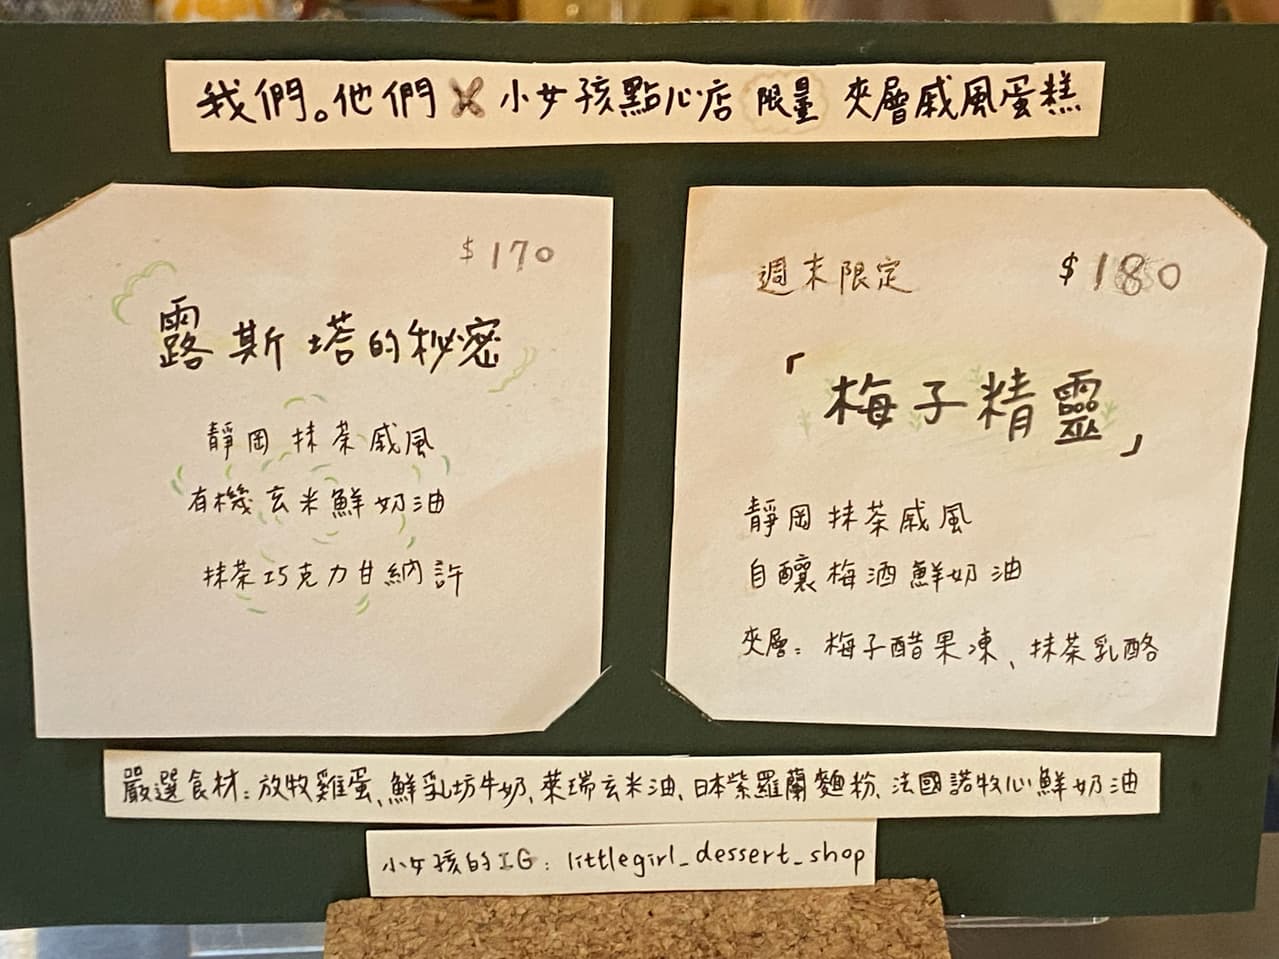 我們。他們 × 小女孩點心店 限量 夾層戚風蛋糕
$170
露斯塔的秘密
靜岡抹茶戚風
有機玄米鮮奶油
抹茶巧克力甘納許
週末限定 $180
「梅子精靈」
靜岡抹茶戚風
自釀梅酒鮮奶油
夾層：梅子醋果凍、抹茶乳酪
嚴選食材：放牧雞蛋、鮮乳坊牛奶、萊瑞玄米油、日本紫羅蘭麵粉、法國諾牧心鮮奶油
小女孩的IG：littlegirl_dessert_shop